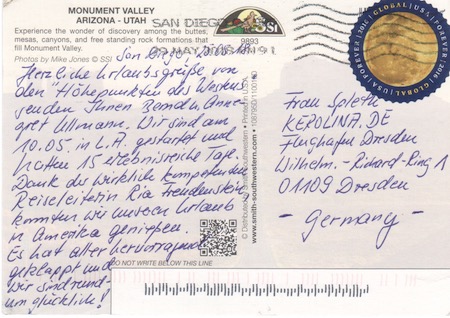 MONUMENT VALLEY
ARIZONA - UTAH
Experience the wonder of discovery among the buttes,
mesas, canyons, and free standing rock formations that
fill Monument Valley.
Photos by Mike Jones © SSI
SAN DIEGO
9893
San Diego,
Herzliche Urlaubsgrüße von
den "Höhepunkten des Westens
senden Ihnen Bernd u. Anne-
gret Ullmann. Wir sind am
10.05. in L.A. gestartet und
hatten 15 erlebnisreiche Tage.
Dank der wirklich kompetenten
Reiseleiterin Ria Freudenstein
konnten wir unseren Urlaub
in Amerika genießen.
Es hat alles hervorragend
geklappt und
wir sind rund-
um glücklich!
DO NOT WRITE BELOW THIS LINE
© Distributed by Smith-Southwestern • Printed in U.S.A.
www.smith-southwestern.com
GLOBAL | USA | FOREVER | 2016
Frau Spleth
KEROLINA.DE
Flughafen Dresden
Wilhelm.-Richard-Ring 1
01109 Dresden
- Germany -